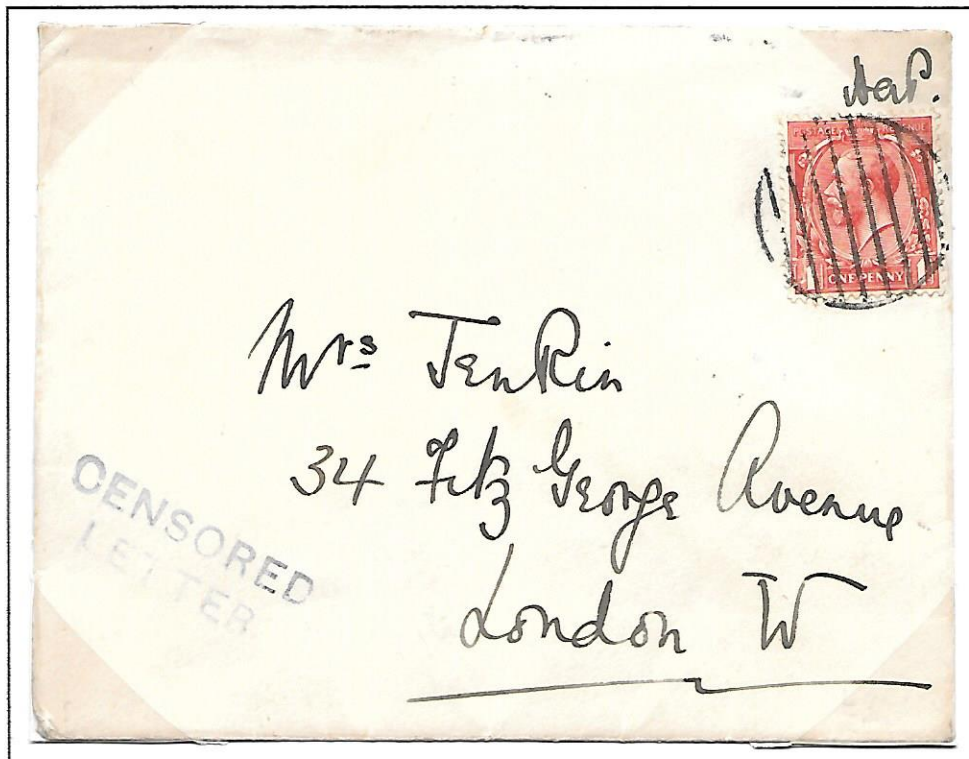 POSTAGE REVENUE
1 ONE PENNY 1
Mrs Jenkin
34 Fitz George Avenue
London W
CENSORED
LETTER